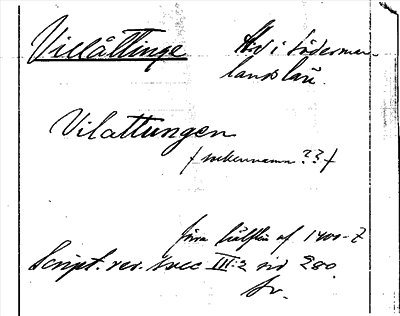 Villåttinge Hd i Söderman-
lands län.
Vilattungen
/ sockennamn ?? /
förra hälften af 1400-t
Script. rer. svec III:2 sid 280.
Sv.